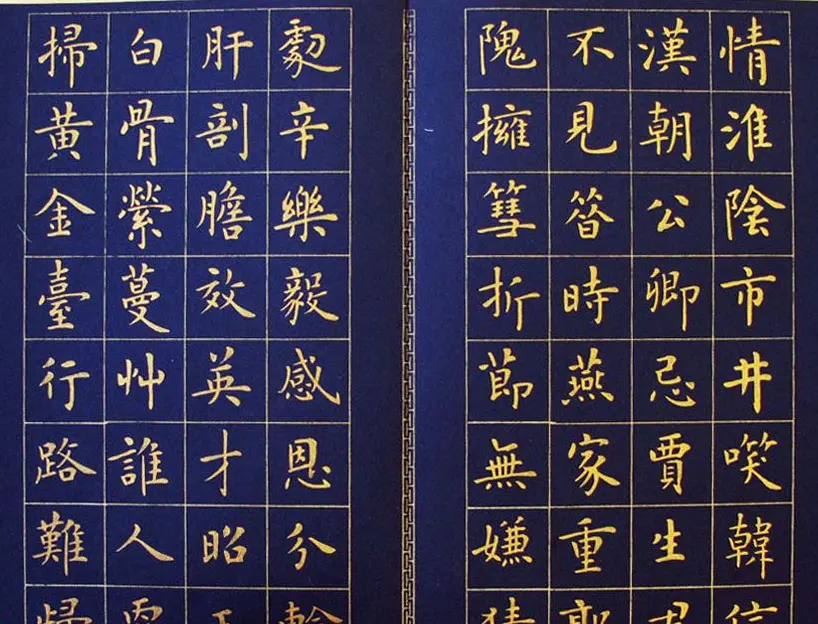 情淮陰市井㗛韓信
漢朝公卿忌賈生君
不見昝時燕家重郭
隗擁篲折節無嫌猜
劇辛樂毅感恩分輸
肝剖膽效英才昭王
白骨縈蔓艸誰人更
掃黃金臺行路難歸